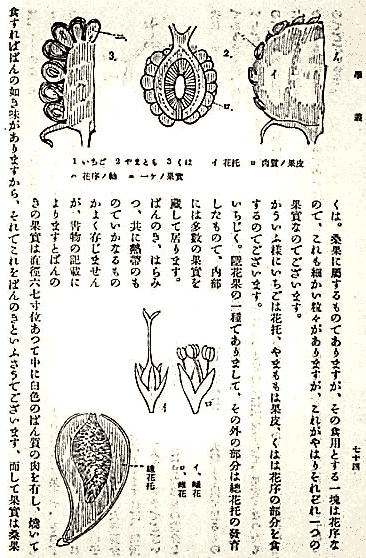 學叢
七十四
1.
2.
3.
イ
ロ
1 いちご 2 やまもも 3 くは イ 花托 ロ 內質ノ果皮
ハ 花序ノ軸 ニ 一ケノ果實
くは。桑果に屬するものでありますが、その食用とする一塊は花序な
ので、これも細かい粒々がありますが、これがやはりそれぞれ一つの
果實なのでございます。
かういふ樣にいちごは花托、やまももは果皮、くはは花序の部分を食
するのでございます。
いちじく。隱花果の一種でありまして、その外の部分は總花托の發育
したもので、內部
には多數の果實を
藏して居ります。
ぱんのき、はらみ
つ、共に熱帶のも
のでいかなるもの
かよく存じません
が、書物の記載に
よりますとぱんの
きの果實は直徑六七寸位あつて中に白色のぱん質の肉を有し、燒いて
食すればぱんの如き味がありますから、それでこれをぱんのきといふさうでございます、而して果實は桑果
イ
ロ
イ、雌花
ロ、雄花
總花托